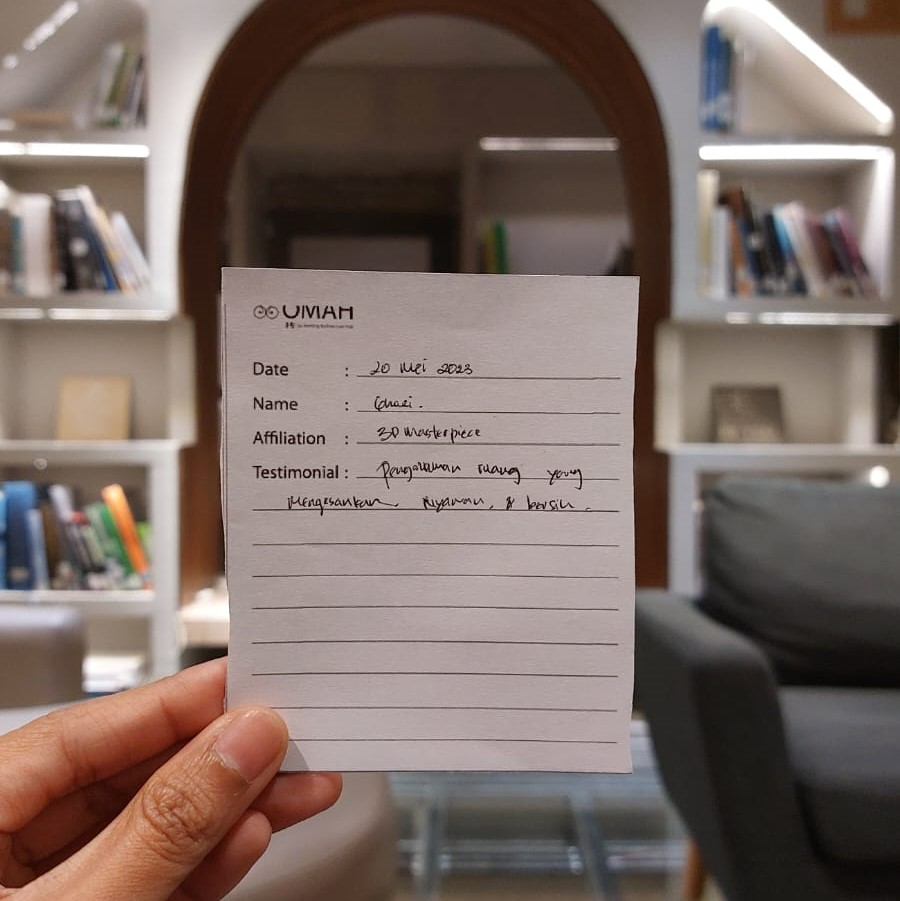 UMAH
Date : 20 Mei 2023
Name : Ghazi.
Affiliation : 3D Masterpiece
Testimonial : Pengalaman ruang yang
mengesankan, nyaman, & bersih.